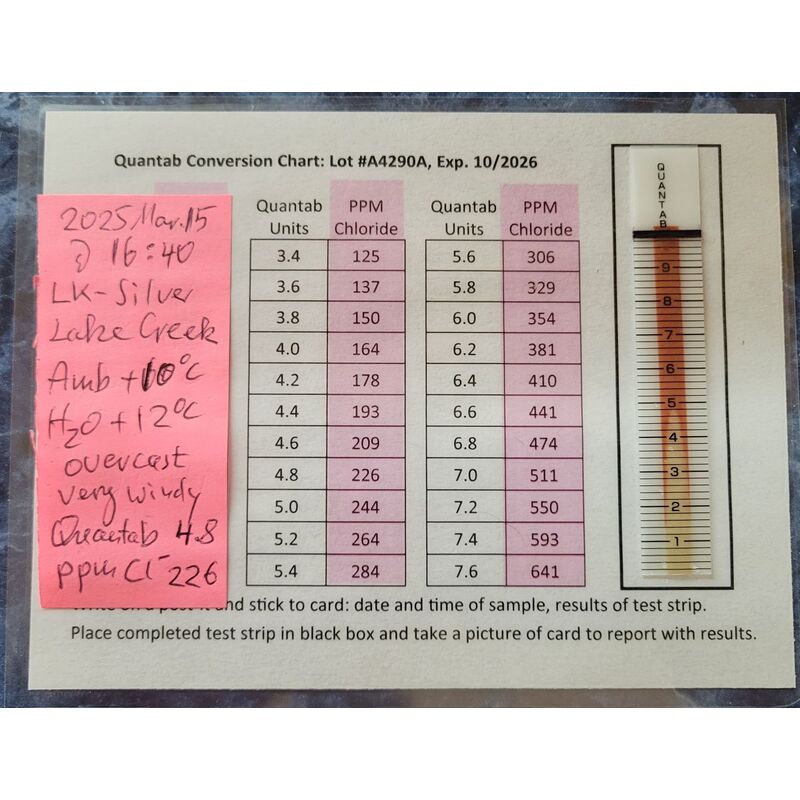 Quantab Conversion Chart: Lot #A4290A, Exp. 10/2026
2025 Mar. 15
@ 16:40
LK-Silver
Lake Creek
Amb +10°C
H2O +12°C
overcast
very windy
Quantab 4.8
ppm Cl- 226
Quantab Units PPM Chloride
3.4 125
3.6 137
3.8 150
4.0 164
4.2 178
4.4 193
4.6 209
4.8 226
5.0 244
5.2 264
5.4 284
Quantab Units PPM Chloride
5.6 306
5.8 329
6.0 354
6.2 381
6.4 410
6.6 441
6.8 474
7.0 511
7.2 550
7.4 593
7.6 641
QUANTAB
9
8
7
6
5
4
3
2
1
on a post-it and stick to card: date and time of sample, results of test strip.
Place completed test strip in black box and take a picture of card to report with results.